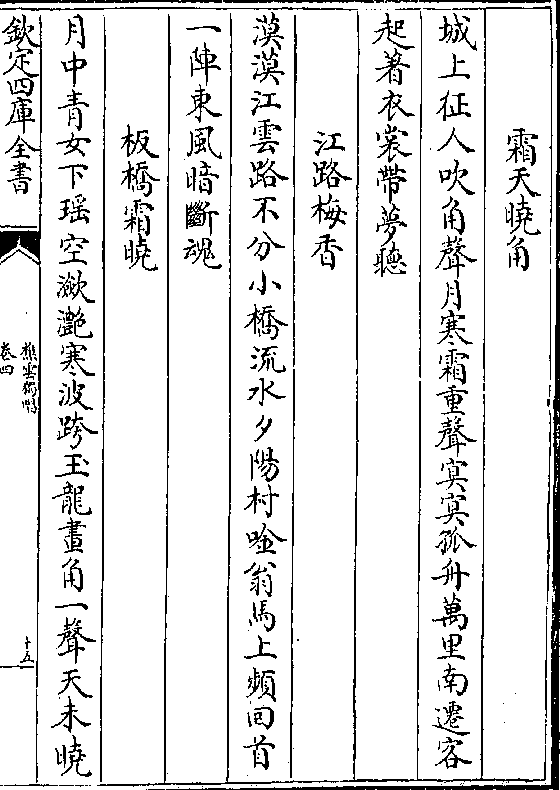 霜天曉角
城上征人吹角聲月寒霜重聲寞寞孤舟萬里南遷客
起著衣裳帶夢聽
江路梅香
漠漠江雲路不分小橋流水夕陽村唫翁馬上頻回首
一陣東風暗斷魂
板橋霜曉
月中青女下瑶空瀲灔寒波跨玉龍畫角一聲天未曉
欽定四庫全書
樵雲獨唱
卷四
十五